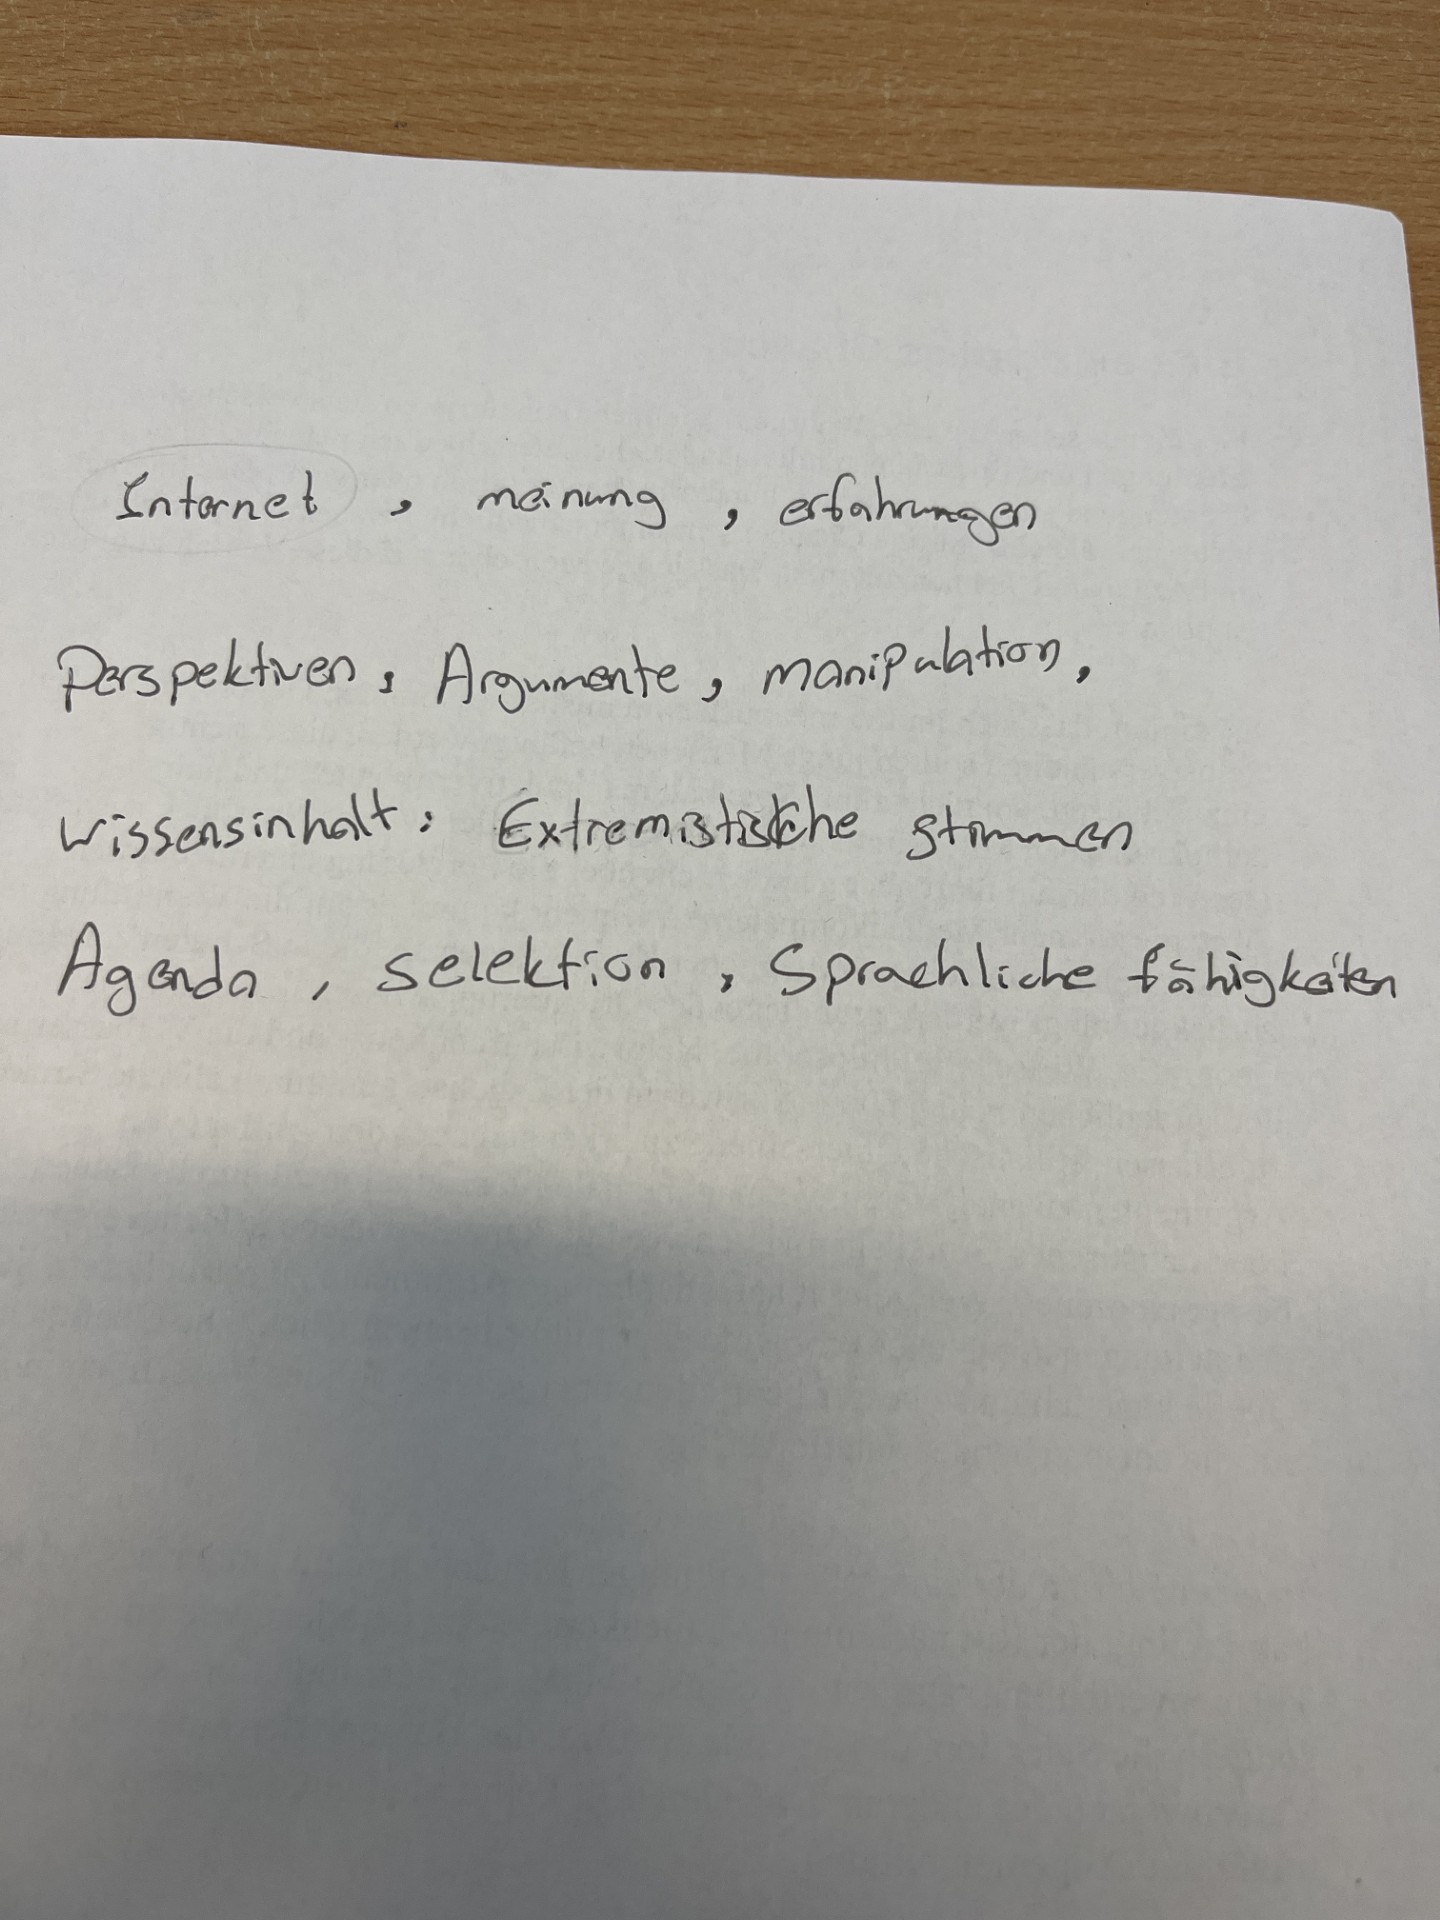 Internet , meinung , erfahrungen
Perspektiven , Argumente , manipulation ,
wissensinhalt , Extremistische stimmen
Agenda , selektion , Sprachliche fähigkeiten